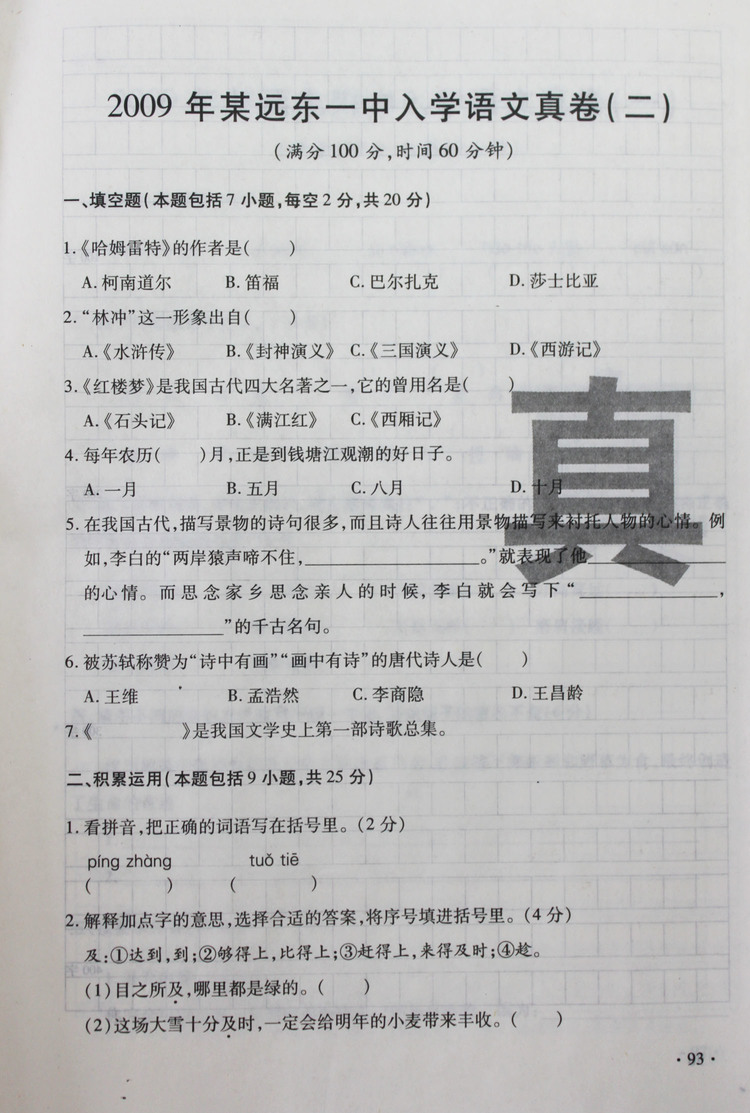 2009 年某远东一中入学语文真卷(二)
(满分 100 分,时间 60 分钟)
一、填空题(本题包括 7 小题,每空 2 分,共 20 分)
1.《哈姆雷特》的作者是(    )
A. 柯南道尔 B. 笛福 C. 巴尔扎克 D. 莎士比亚
2. “林冲”这一形象出自(    )
A.《水浒传》 B.《封神演义》 C.《三国演义》 D.《西游记》
3.《红楼梦》是我国古代四大名著之一,它的曾用名是(    )
A.《石头记》 B.《满江红》 C.《西厢记》
4. 每年农历(    )月,正是到钱塘江观潮的好日子。
A. 一月 B. 五月 C. 八月 D. 十月
真
5. 在我国古代,描写景物的诗句很多,而且诗人往往用景物描写来衬托人物的心情。例
如,李白的“两岸猿声啼不住,____________。”就表现了他____________
的心情。而思念家乡思念亲人的时候,李白就会写下“____________,
____________”的千古名句。
6. 被苏轼称赞为“诗中有画”“画中有诗”的唐代诗人是(    )
A. 王维 B. 孟浩然 C. 李商隐 D. 王昌龄
7.《        》是我国文学史上第一部诗歌总集。
二、积累运用(本题包括 9 小题,共 25 分)
1. 看拼音,把正确的词语写在括号里。(2 分)
píng zhàng tuǒ tiē
(        ) (        )
2. 解释加点字的意思,选择合适的答案,将序号填进括号里。(4 分)
及:①达到,到;②够得上,比得上;③赶得上,来得及时;④趁。
(1)目之所及,哪里都是绿的。(    )
(2)这场大雪十分及时,一定会给明年的小麦带来丰收。(    )
· 93 ·